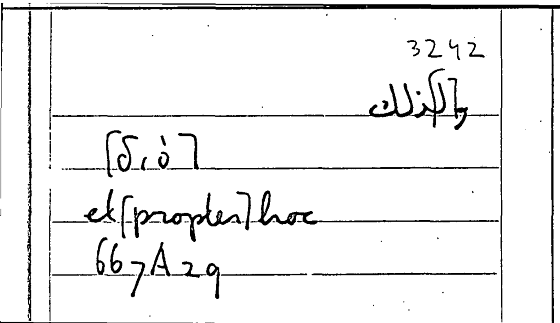 3242
و[لذلك]
[διὸ]
et [propter] hoc
667A29